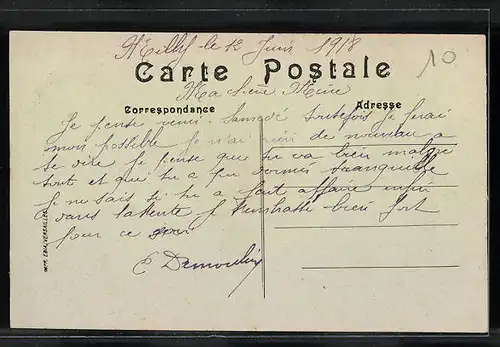 Milly le 12 Juin 1918
10
Carte Postale
Ma chère Mine
Correspondance
Adresse
Je pense venir Samedi toutefois je ferai
mon possible je n'ai rien de nouveau a
te dire je pense que tu va bien malgré
tout et que tu a pu dormir tranquille
je ne sais si tu a fait affaire
dans l'attente je bien fort
pour ce soir
E Demoulin
IMP. VERSAILLES